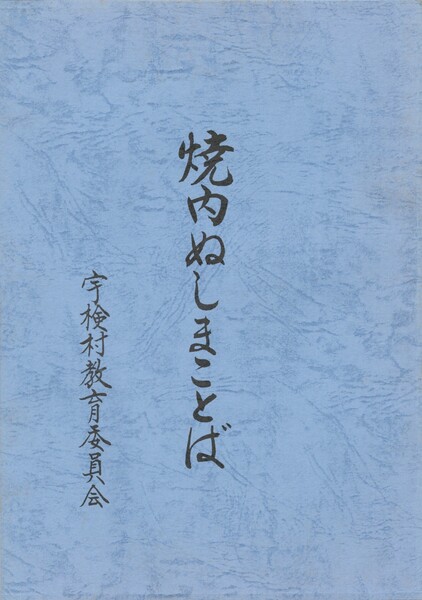 焼内ぬしまことば
宇検村教育委員会